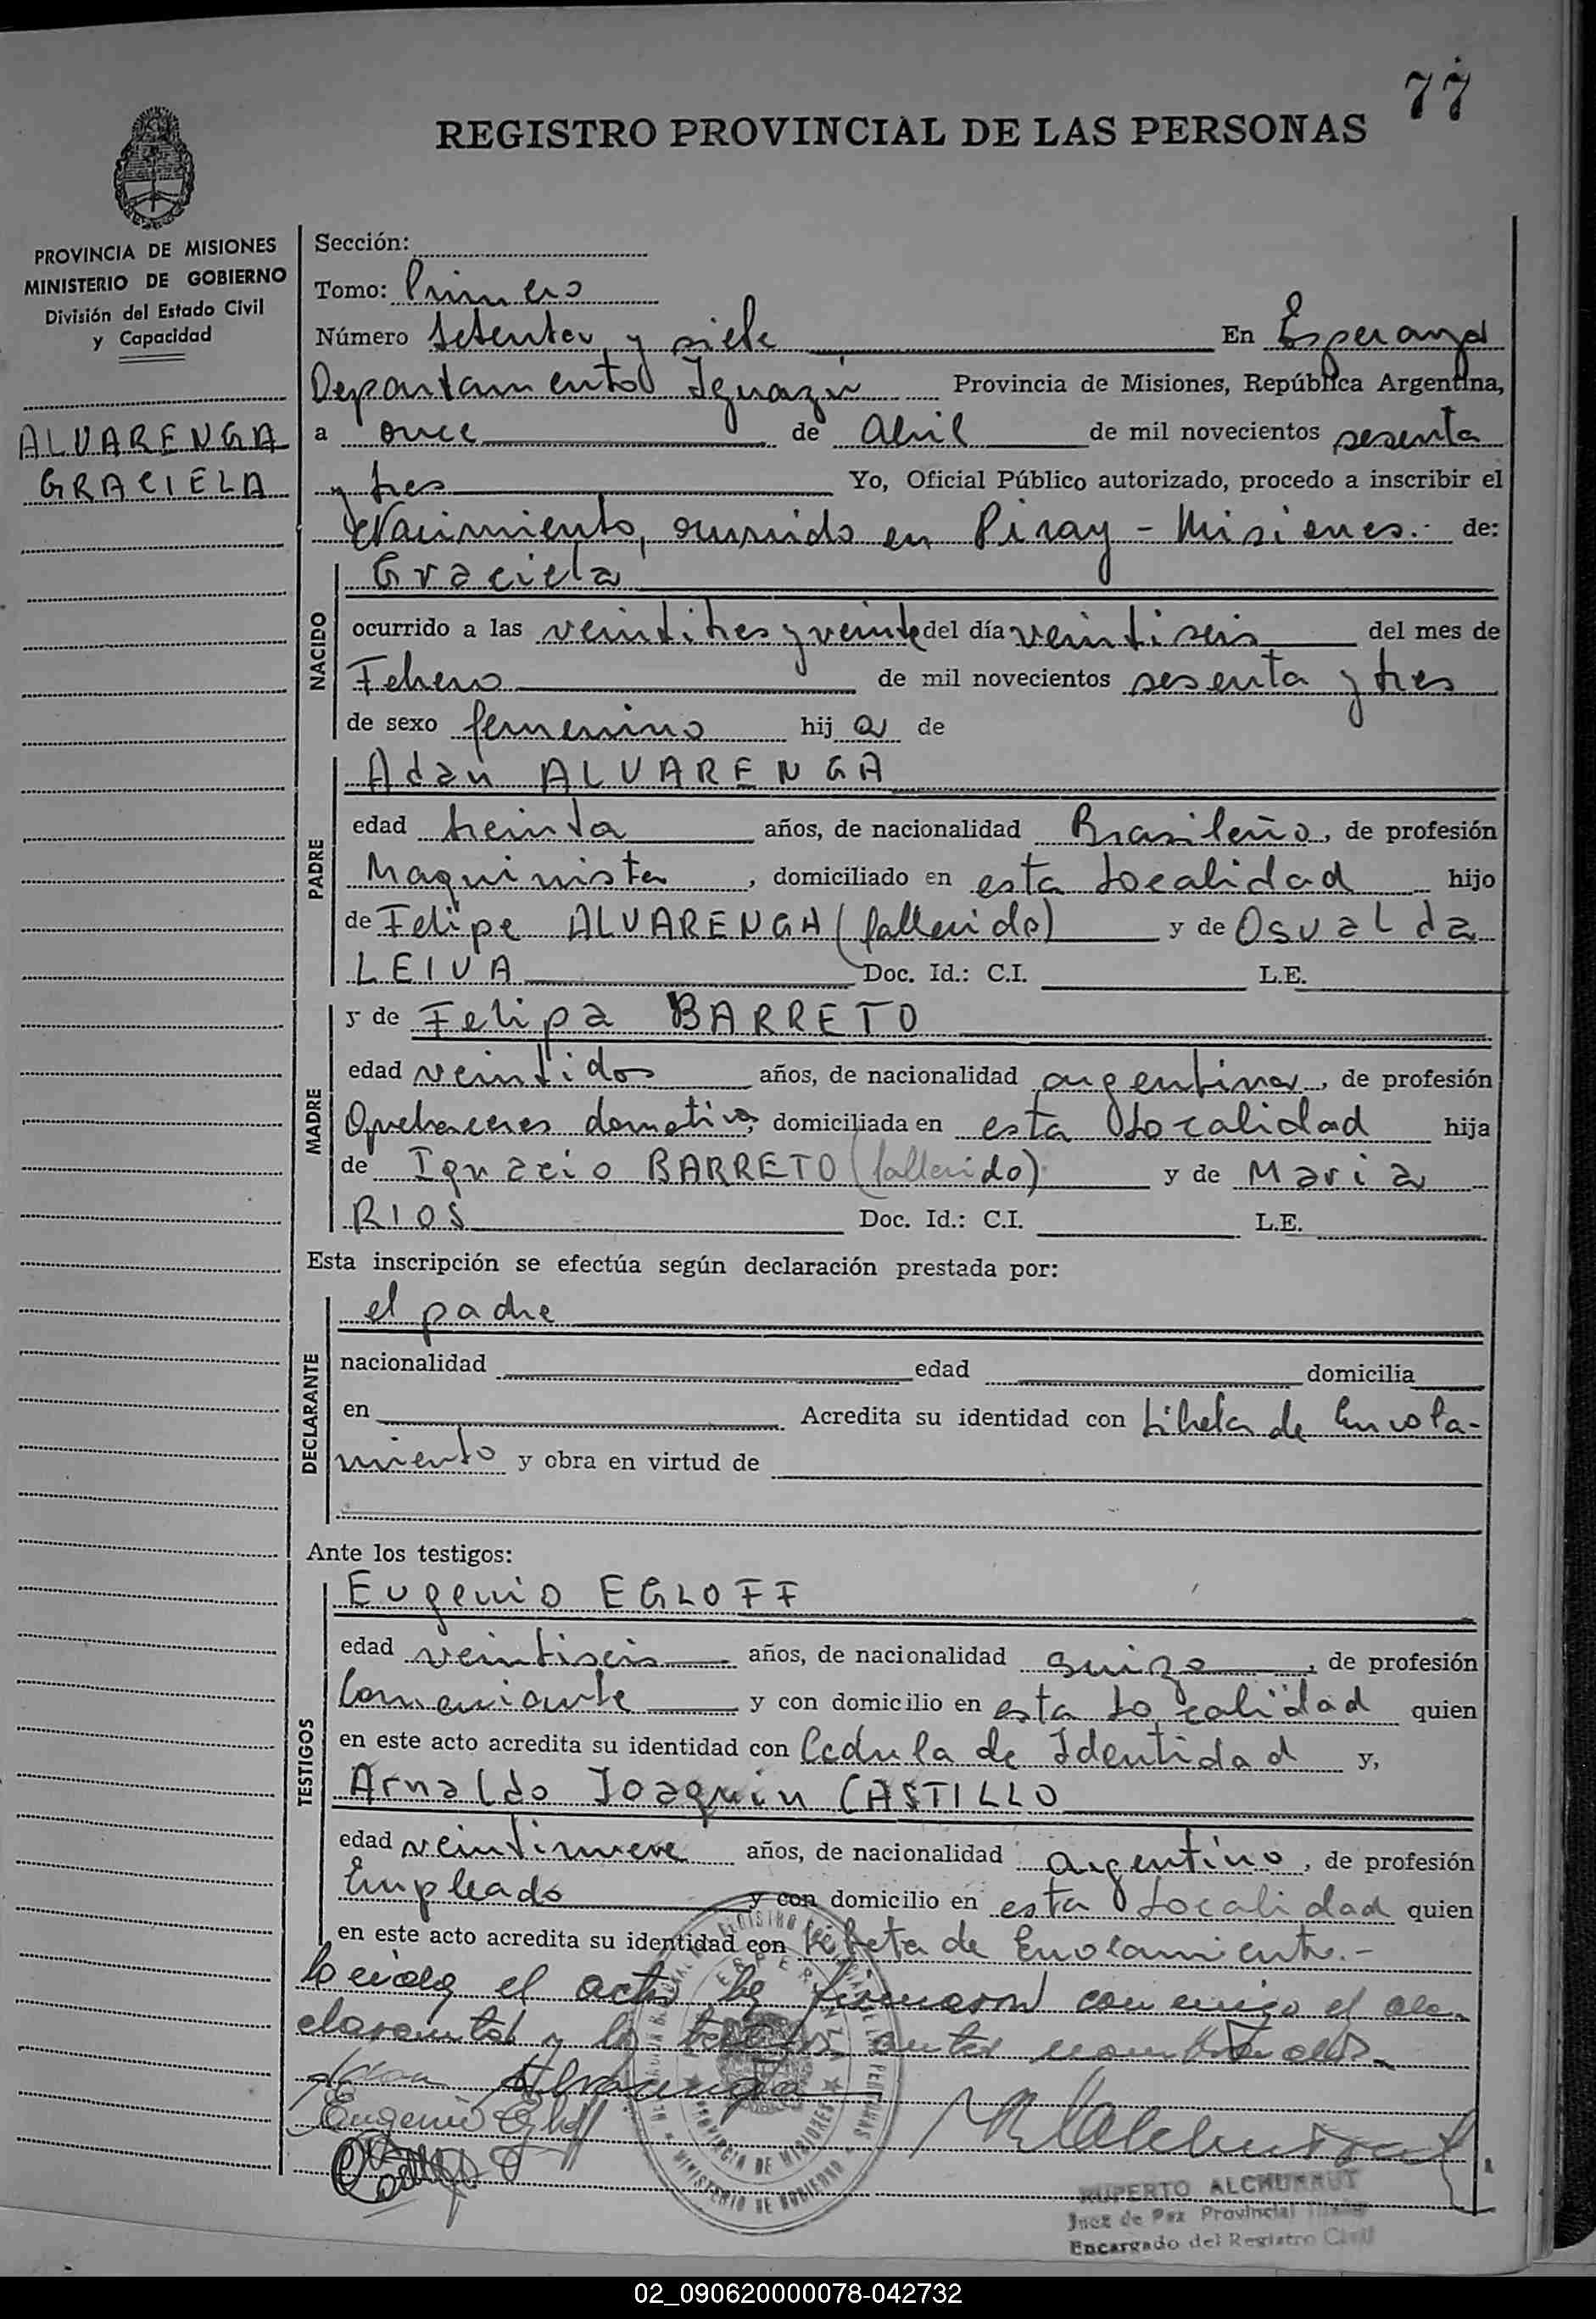 77
REGISTRO PROVINCIAL DE LAS PERSONAS
PROVINCIA DE MISIONES
MINISTERIO DE GOBIERNO
División del Estado Civil
y Capacidad
ALVARENGA
GRACIELA
Sección:
Tomo: Primero
Número Setenta y siete En Esperanza
Departamento Iguazú Provincia de Misiones, República Argentina,
a once de Abril de mil novecientos sesenta
y tres Yo, Oficial Público autorizado, procedo a inscribir el
Nacimiento, ocurrido en Piray - Misiones.- de:
NACIDO
Graciela
ocurrido a las veintitres y veinte del día veintiseis del mes de
Febrero de mil novecientos sesenta y tres
de sexo femenino hij a de
PADRE
Adan ALVARENGA
edad treinta años, de nacionalidad Brasileño, de profesión
Maquinista, domiciliado en esta Localidad hijo
de Felipe ALVARENGA (fallecido) y de Osvalda
LEIVA Doc. Id.: C.I. L.E.
MADRE
y de Felipa BARRETO
edad veintidos años, de nacionalidad argentina, de profesión
Quehaceres domestico, domiciliada en esta Localidad hija
de Ignacio BARRETO (fallecido) y de Maria
RIOS Doc. Id.: C.I. L.E.
Esta inscripción se efectúa según declaración prestada por:
DECLARANTE
el padre
nacionalidad edad domicilia
en Acredita su identidad con Libreta de Enrola-
miento y obra en virtud de
Ante los testigos:
TESTIGOS
Eugenio EGLOFF
edad veintiseis años, de nacionalidad suizo, de profesión
Comerciante y con domicilio en esta Localidad quien
en este acto acredita su identidad con Cedula de Identidad y,
Arnaldo Joaquin CASTILLO
edad veintinueve años, de nacionalidad argentino, de profesión
Empleado y con domicilio en esta Localidad quien
en este acto acredita su identidad con Libreta de Enrolamiento.-
Leida el acta la firmaron conmigo el de-
clarante y los testigos antes nombrados.-
Adan Alvarenga
Eugenio Egloff
PROVINCIA DE MISIONES
MINISTERIO DE GOBIERNO
RUPERTO ALCHURRUT
Juez de Paz Provincial
Encargado del Registro Civil
02_090620000078-042732